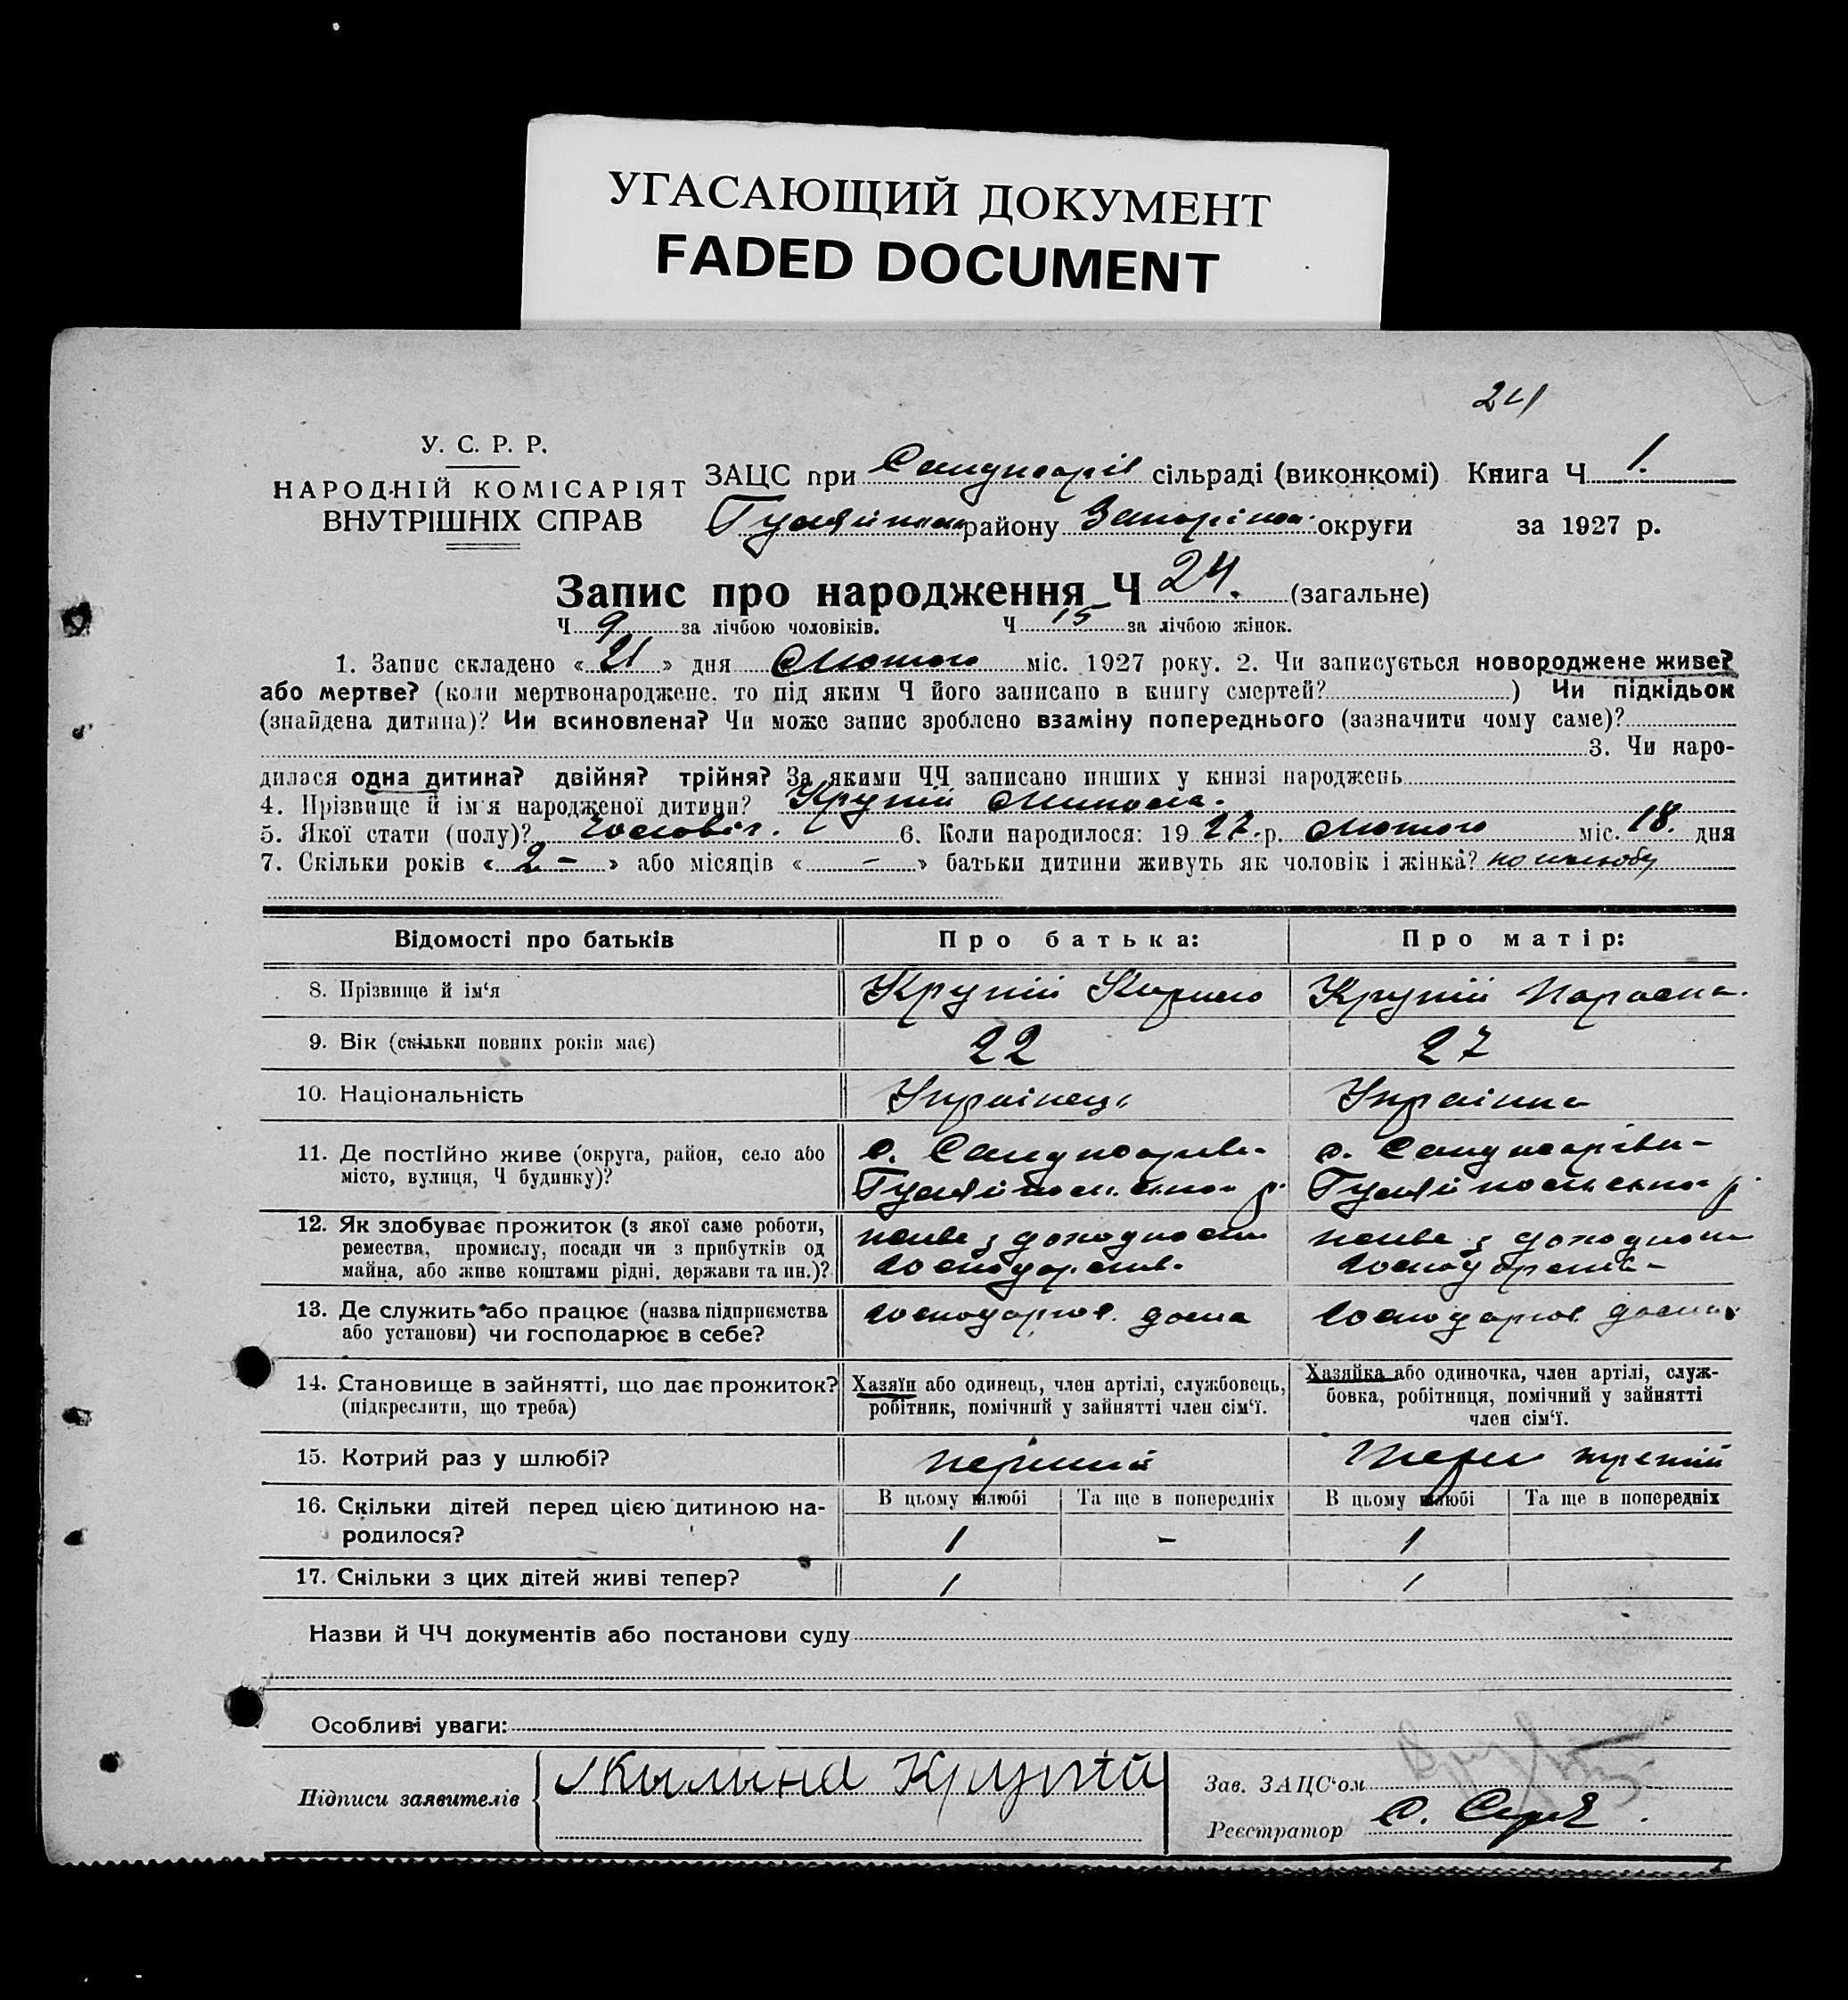 УГАСАЮЩИЙ ДОКУМЕНТ
FADED DOCUMENT
24
У. С. Р. Р.
НАРОДНІЙ КОМІСАРІЯТ
ВНУТРІШНІХ СПРАВ
ЗАЦС при сільраді (виконкомі) Книга Ч 1.
району округи за 1927 р.
Запис про народження Ч 24. (загальне)
Ч 9 за лічбою чоловіків. Ч 15 за лічбою жінок.
1. Запис складено «21» дня Лютого міс. 1927 року. 2. Чи записується новороджене живе?
або мертве? (коли мертвонароджене, то під яким Ч його записано в книгу смертей? ) Чи підкідьок
(знайдена дитина)? Чи всиновлена? Чи може запис зроблено взаміну попереднього (зазначити чому саме)?
3. Чи наро-
дилася одна дитина? двійня? трійня? За якими ЧЧ записано инших у книзі народжень
4. Прізвище й ім'я народженої дитини? Крупій Микола.
5. Якої стати (полу)? чоловіч. 6. Коли народилося: 1927 р. Лютого міс. 18. дня
7. Скільки років «2 –» або місяців «–» батьки дитини живуть як чоловік і жінка? по шлюбу
Відомості про батьків Про батька: Про матір:
8. Прізвище й ім'я Крупій Крупій Параска.
9. Вік (скільки повних років має) 22 27
10. Національність Українець Українка
11. Де постійно живе (округа, район, село або
місто, вулиця, Ч будинку)?
12. Як здобуває прожиток (з якої саме роботи,
ремества, промислу, посади чи з прибутків од
майна, або живе коштами рідні, держави та ин.)?
13. Де служить або працює (назва підприємства
або установи) чи господарює в себе? господарює дома господарює дома
14. Становище в зайнятті, що дає прожиток?
(підкреслити, що треба)
Хазяїн або одинець, член артілі, службовець,
робітник, помічний у зайнятті член сім'ї.
Хазяйка або одиночка, член артілі, служ-
бовка, робітниця, помічний у зайнятті
член сім'ї.
15. Котрий раз у шлюбі? перший третій
16. Скільки дітей перед цією дитиною на-
родилося?
В цьому шлюбі Та ще в попередніх В цьому шлюбі Та ще в попередніх
1 – 1
17. Скільки з цих дітей живі тепер? 1 1
Назви й ЧЧ документів або постанови суду
Особливі уваги:
Підписи заявителів Килина Крупій
Зав. ЗАЦС'ом
Реєстратор